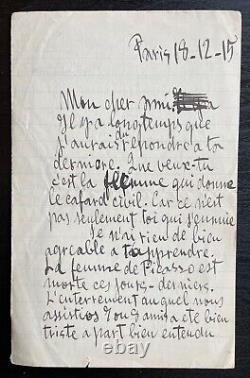 Paris 18-12-15
Mon cher ami
Il y a longtemps que
j'aurais du repondre a ta
derniere. Que veux-tu
c'est la flemme qui donne
le cafard civil. Car ce n'est
pas seulement toi qui s'ennuie
Je n'ai rien de bien
agreable a t'apprendre.
La femme de Picasso est
morte ces jours-derniers.
L'enterrement auquel nous
assistios 7 ou 8 amis a ete bien
triste a part bien entendu